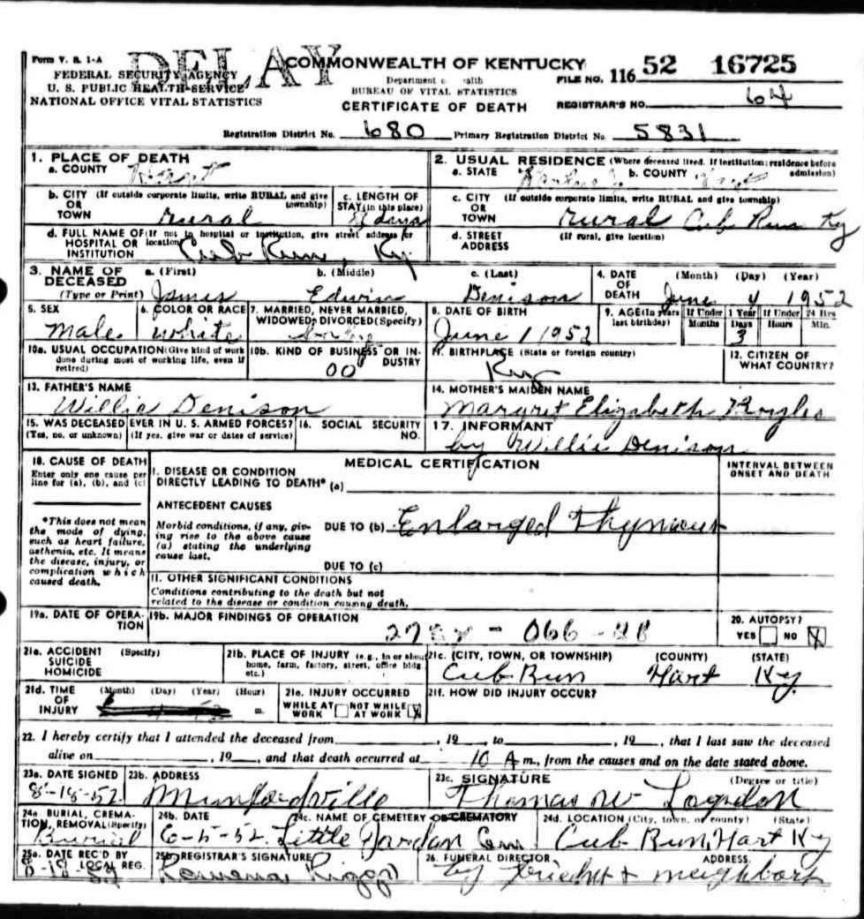 Form V. S. 1-A
DELAY
COMMONWEALTH OF KENTUCKY
FILE NO. 116 52 16725
FEDERAL SECURITY AGENCY
U. S. PUBLIC HEALTH SERVICE
NATIONAL OFFICE VITAL STATISTICS
Department o ealth
BUREAU OF VITAL STATISTICS
CERTIFICATE OF DEATH
REGISTRAR'S NO. 64
Registration District No. 680 Primary Registration District No. 5831
1. PLACE OF DEATH
a. COUNTY Hart
2. USUAL RESIDENCE (Where deceased lived. If institution: residence before admission)
a. STATE Kentucky b. COUNTY Hart
b. CITY (If outside corporate limits, write RURAL and give township)
OR TOWN Rural
c. LENGTH OF STAY (in this place) days
c. CITY (If outside corporate limits, write RURAL and give township)
OR TOWN Rural Cub Run Ky
d. FULL NAME OF (If not in hospital or institution, give street address or location)
HOSPITAL OR INSTITUTION Cub Run, Ky.
d. STREET ADDRESS (If rural, give location)
3. NAME OF DECEASED (Type or Print)
a. (First) James b. (Middle) Edwin c. (Last) Denison
4. DATE OF DEATH (Month) (Day) (Year) June 4 1952
5. SEX male
6. COLOR OR RACE white
7. MARRIED, NEVER MARRIED, WIDOWED, DIVORCED (Specify)
8. DATE OF BIRTH June 1 1952
9. AGE (In years last birthday) If Under 1 Year Months Days 3 If Under 24 Hrs Hours Min.
10a. USUAL OCCUPATION (Give kind of work done during most of working life, even if retired)
10b. KIND OF BUSINESS OR INDUSTRY 00
11. BIRTHPLACE (State or foreign country) Ky
12. CITIZEN OF WHAT COUNTRY?
13. FATHER'S NAME
Willie Denison
14. MOTHER'S MAIDEN NAME
Margret Elizabeth
15. WAS DECEASED EVER IN U. S. ARMED FORCES?
(Yes, no, or unknown) (If yes, give war or dates of service)
16. SOCIAL SECURITY NO.
17. INFORMANT
by Willie Denison
18. CAUSE OF DEATH
Enter only one cause per line for (a), (b), and (c)
MEDICAL CERTIFICATION
INTERVAL BETWEEN ONSET AND DEATH
I. DISEASE OR CONDITION DIRECTLY LEADING TO DEATH* (a)
*This does not mean the mode of dying, such as heart failure, asthenia, etc. It means the disease, injury, or complication which caused death.
ANTECEDENT CAUSES
Morbid conditions, if any, giving rise to the above cause (a) stating the underlying cause last.
DUE TO (b) Enlarged
DUE TO (c)
II. OTHER SIGNIFICANT CONDITIONS
Conditions contributing to the death but not related to the disease or condition causing death.
19a. DATE OF OPERATION
19b. MAJOR FINDINGS OF OPERATION
066
20. AUTOPSY?
YES NO X
21a. ACCIDENT SUICIDE HOMICIDE (Specify)
21b. PLACE OF INJURY (e.g., in or about home, farm, factory, street, office bldg etc.)
21c. (CITY, TOWN, OR TOWNSHIP) (COUNTY) (STATE)
Cub Run Hart Ky.
21d. TIME OF INJURY (Month) (Day) (Year) (Hour) m.
21e. INJURY OCCURRED
WHILE AT WORK NOT WHILE AT WORK X
21f. HOW DID INJURY OCCUR?
22. I hereby certify that I attended the deceased from , 19 , to , 19 , that I last saw the deceased
alive on , 19 , and that death occurred at 10 A m., from the causes and on the date stated above.
23a. DATE SIGNED 8-18-52
23b. ADDRESS Munfordville
23c. SIGNATURE (Degree or title)
Thomas W Logsdon
24a. BURIAL, CREMATION, REMOVAL (Specify) Burial
24b. DATE 6-5-52
24c. NAME OF CEMETERY OR CREMATORY Little Jordan Cem
24d. LOCATION (City, town, or county) (State)
Cub Run, Hart Ky
25a. DATE REC'D BY LOCAL REG.
25b. REGISTRAR'S SIGNATURE
26. FUNERAL DIRECTOR ADDRESS
by friends + neighbors